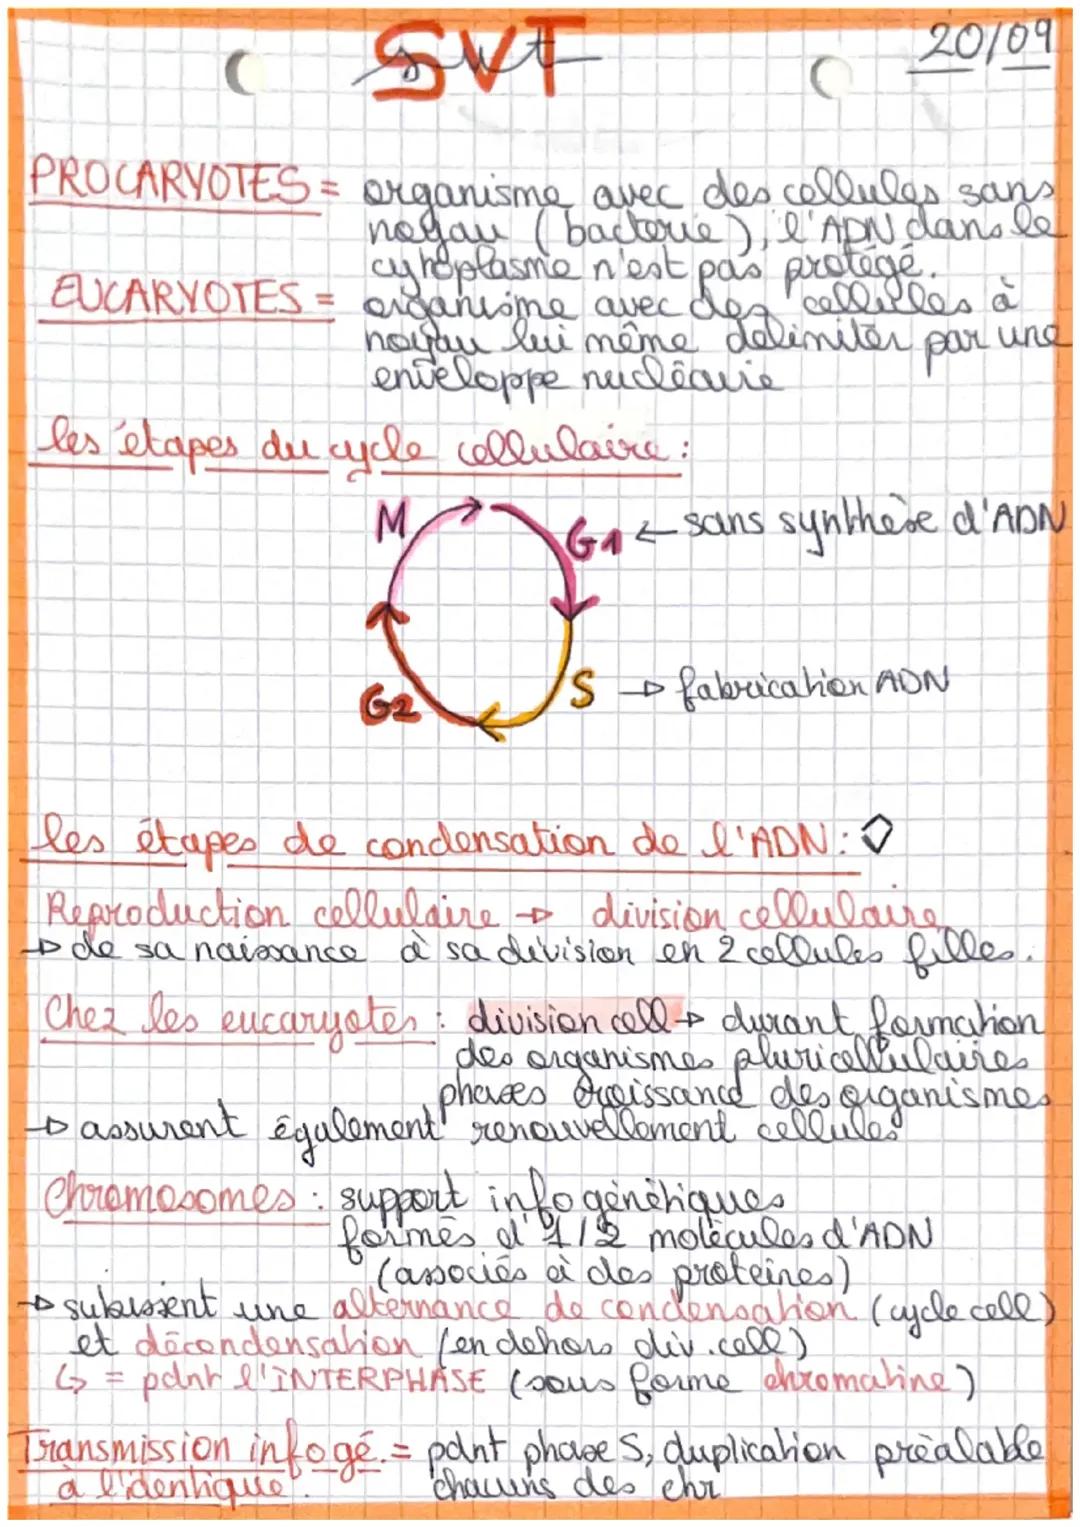 SVT
20/09
PROCARYOTES = organisme avec des cellules sans
noyau (bacterie), l'ADN dans le
cytoplasme n'est pas protégé.
EUCARYOTES = organisme avec des cellules à
noyau lui même délimiter par une
enveloppe nucléaire
les étapes du cycle cellulaire :
M
G1 ← sans synthèse d'ADN
S → fabrication ADN
G2
les étapes de condensation de l'ADN :
Reproduction cellulaire → division cellulaire
→ de sa naissance à sa division en 2 cellules filles.
Chez les eucaryotes : division cell → durant formation
des organismes pluricellulaires
phases croissance des organismes
→ assurent également renouvellement cellules
Chromosomes : support info génétiques
formés d'1/2 molécules d'ADN
(associés à des proteines)
→ subissent une alternance de condensation (cycle cell)
et décondensation (en dehors div. cell)
↳ = pdnt l'INTERPHASE (sous forme chromatine)
Transmission info gé. = pdnt phase S, duplication préalable
à l'identique. chacuns des chr